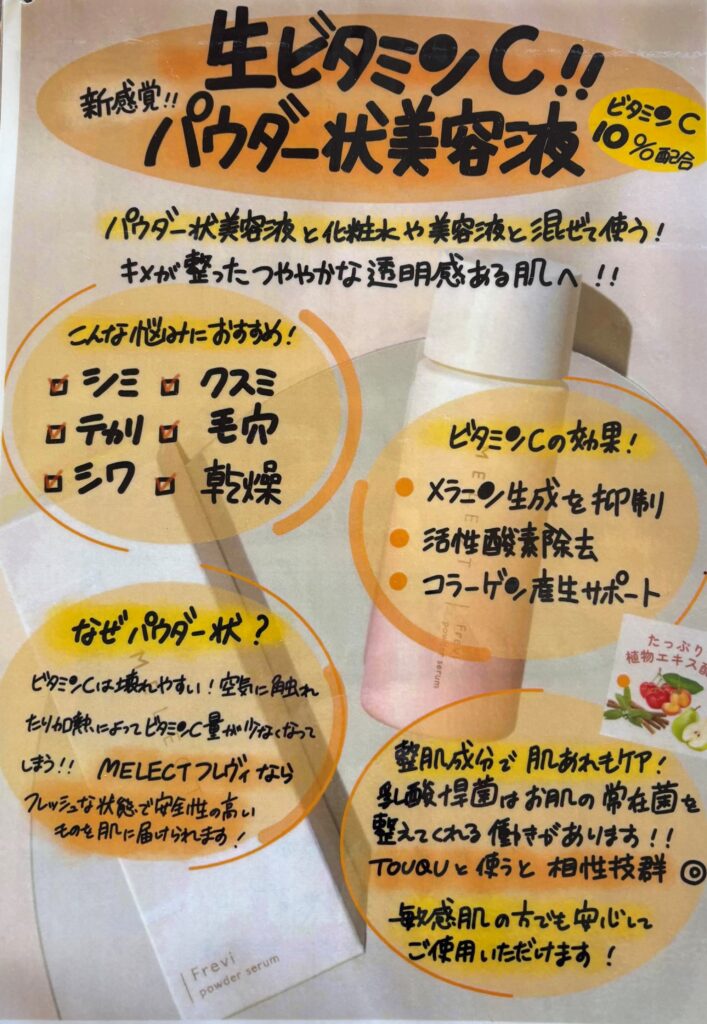 生ビタミンC!!
新感覚!!
パウダー状美容液
ビタミンC
10%配合
パウダー状美容液と化粧水や美容液と混ぜて使う!
キメが整ったつややかな透明感ある肌へ!!
こんな悩みにおすすめ!
シミ クスミ
テカリ 毛穴
シワ 乾燥
ビタミンCの効果!
メラニン生成を抑制
活性酸素除去
コラーゲン産生サポート
なぜパウダー状?
ビタミンCは壊れやすい!空気に触れ
たり加熱によってビタミンC量が少なくなって
しまう!! MELECTフレヴィなら
フレッシュな状態で安全性の高い
ものを肌に届けられます!
たっぷり
植物エキス配
整肌成分で肌あれもケア!
乳酸桿菌はお肌の常在菌を
整えてくれる働きがあります!!
TOUQUと使うと相性抜群◎
敏感肌の方でも安心して
ご使用いただけます!
MELECT
Frevi
powder serum
Frevi
powder serum